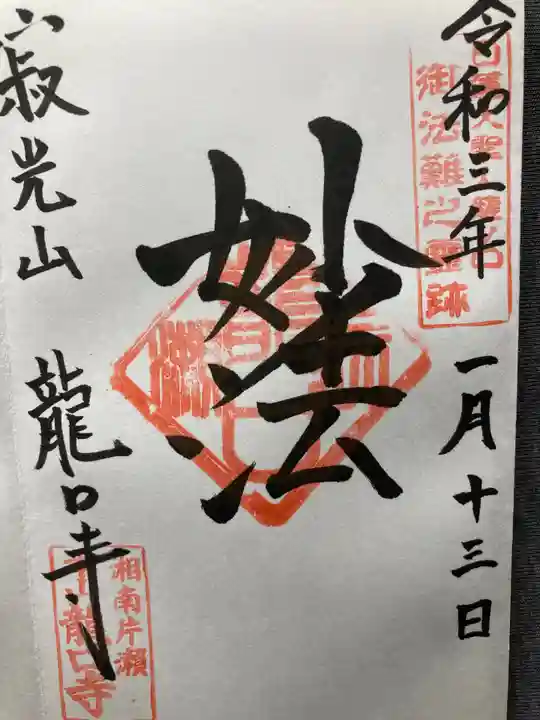 令和三年 一月十三日
御法難之霊跡
妙法
寂光山 龍口寺
相南片瀬
龍口寺